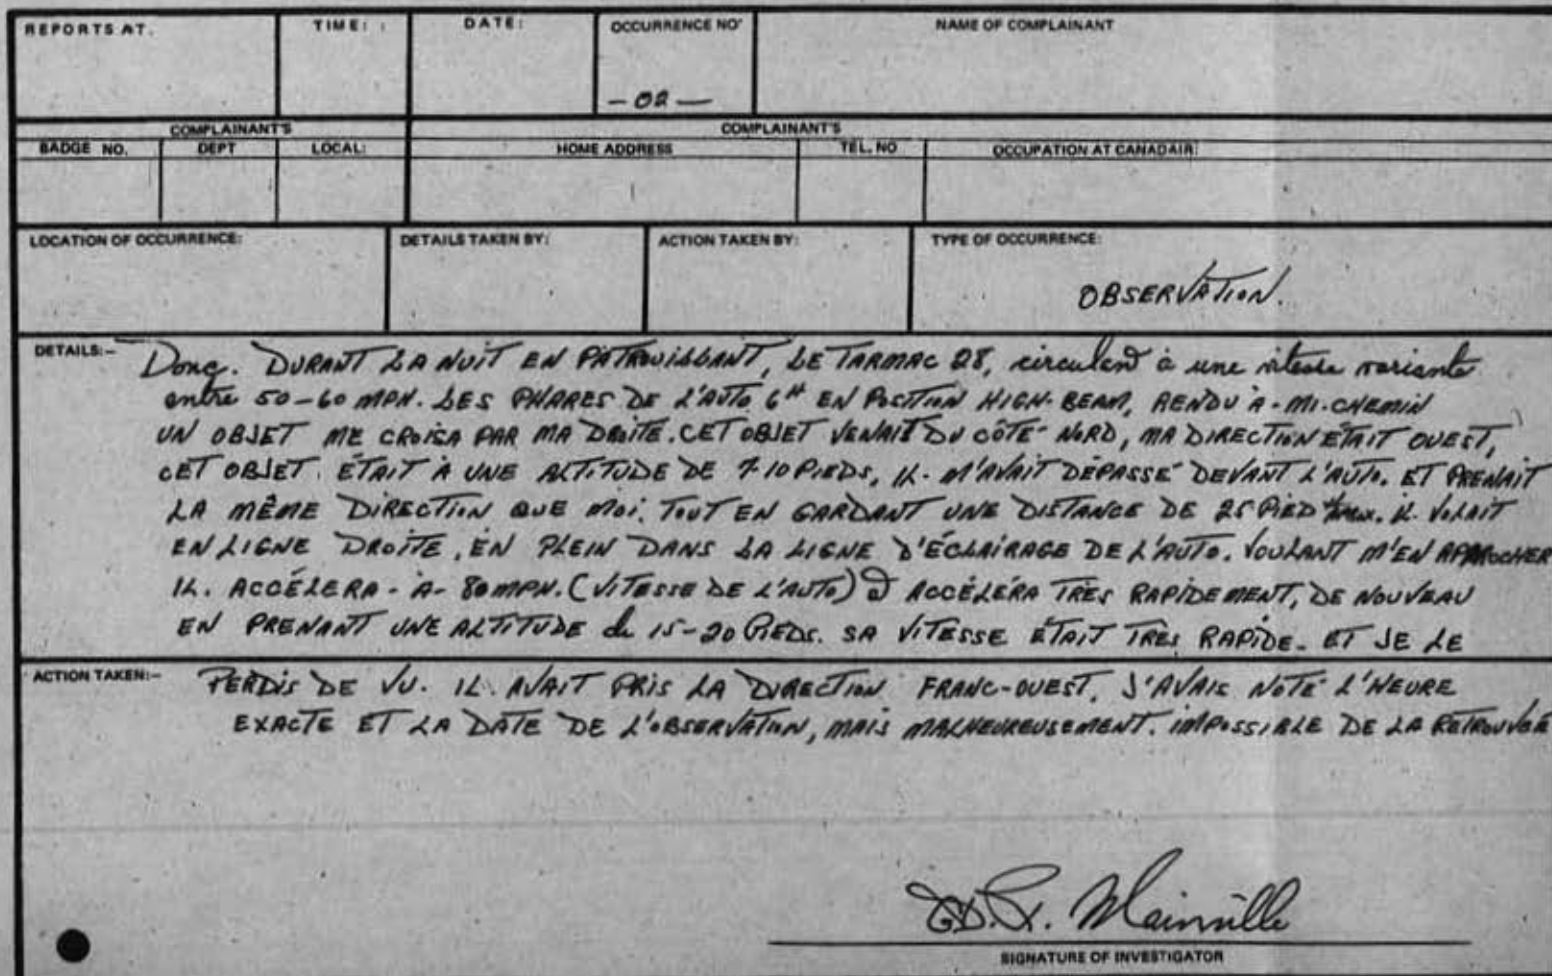 REPORTS AT. TIME: DATE: OCCURRENCE NO' NAME OF COMPLAINANT
- 02 -
COMPLAINANT'S COMPLAINANT'S
BADGE NO. DEPT LOCAL: HOME ADDRESS TEL. NO OCCUPATION AT CANADAIR:
LOCATION OF OCCURRENCE: DETAILS TAKEN BY: ACTION TAKEN BY: TYPE OF OCCURRENCE:
OBSERVATION.
DETAILS:- Donc. DURANT LA NUIT EN PATROUILLANT, LE TARMAC 28, circulant à une vitesse variante
entre 50-60 MPH. LES PHARES DE L'AUTO EN POSITION HIGH-BEAM, RENDU À-MI-CHEMIN
UN OBJET ME CROISA PAR MA DROITE. CET OBJET VENAIT DU CÔTÉ NORD, MA DIRECTION ÉTAIT OUEST,
CET OBJET. ÉTAIT À UNE ALTITUDE DE 7-10 PIEDS, IL. M'AVAIT DÉPASSÉ DEVANT L'AUTO. ET PRENAIT
LA MÊME DIRECTION QUE MOI. TOUT EN GARDANT UNE DISTANCE DE 25 PIED IL. VOLAIT
EN LIGNE DROITE, EN PLEIN DANS LA LIGNE D'ÉCLAIRAGE DE L'AUTO. VOULANT M'EN APPROCHER
IL. ACCÉLERA - À - 80 MPH. (VITESSE DE L'AUTO) ACCÉLÉRA TRÈS RAPIDEMENT, DE NOUVEAU
EN PRENANT UNE ALTITUDE de 15-20 PIEDS. SA VITESSE ÉTAIT TRÈS RAPIDE. ET JE LE
ACTION TAKEN:- PERDIS DE VU. IL. AVAIT PRIS LA DIRECTION FRANC-OUEST. J'AVAIS NOTÉ L'HEURE
EXACTE ET LA DATE DE L'OBSERVATION, MAIS MALHEUREUSEMENT. IMPOSSIBLE DE LA RETROUVER
Mainville
SIGNATURE OF INVESTIGATOR